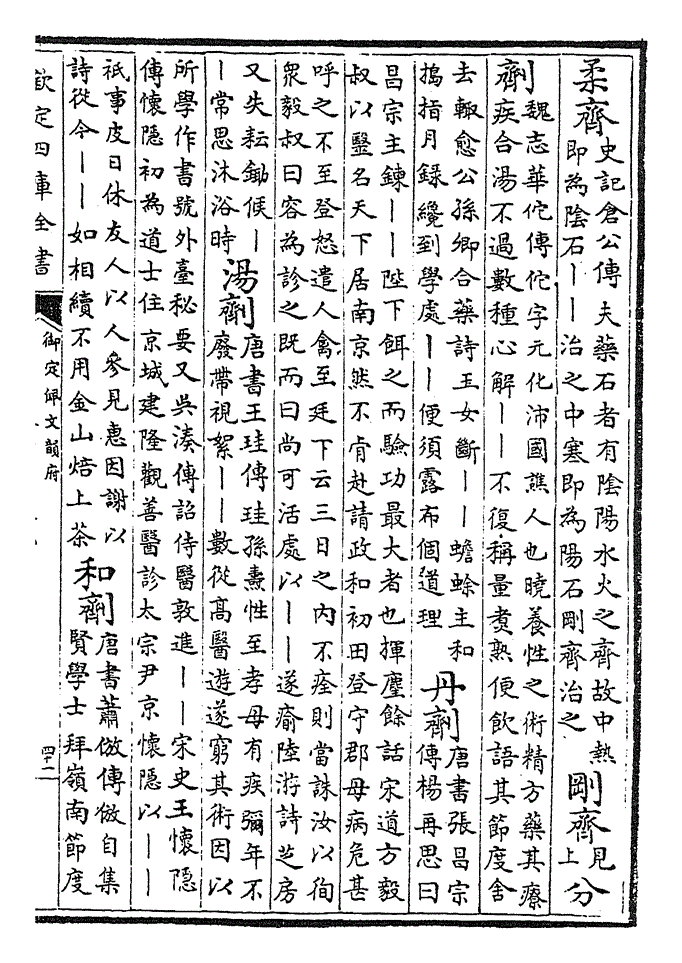 柔齊史記倉公傳夫藥石者有陰陽水火之齊故中熱
即為陰石丨丨治之中寒即為陽石剛齊治之
剛齊見上
分
劑魏志華佗傳佗字元化沛國譙人也曉養性之術精方藥其療
疾合湯不過數種心解丨丨不復稱量煑熟便飲語其節度舍
去輙愈公孫卿合藥詩玉女斷丨丨蟾蜍主和
搗指月録纔到學處丨丨便須露布個道理
丹劑唐書張昌宗
傳楊再思曰
昌宗主鍊丨丨陛下餌之而驗功最大者也揮麈餘話宋道方毅
叔以醫名天下居南京然不肯赴請政和初田登守郡母病危甚
呼之不至登怒遣人禽至廷下云三日之内不痊則當誅汝以徇
衆毅叔曰容為診之既而曰尚可活處以丨丨遂瘉陸游詩芝房
又失耘鋤候丨
丨常思沐浴時
湯劑唐書王珪傳珪孫燾性至孝母有疾彌年不
廢帶視絮丨丨數從高醫遊遂窮其術因以
所學作書號外臺秘要又吳湊傳詔侍醫敦進丨丨宋史王懷隱
傳懷隱初為道士住京城建隆觀善醫診太宗尹京懷隱以丨丨
祇事皮日休友人以人參見惠因謝以
詩從今丨丨如相續不用金山焙上茶
和劑唐書蕭倣傳倣自集
賢學士拜嶺南節度
欽定四庫全書
御定佩文韻府
四十一